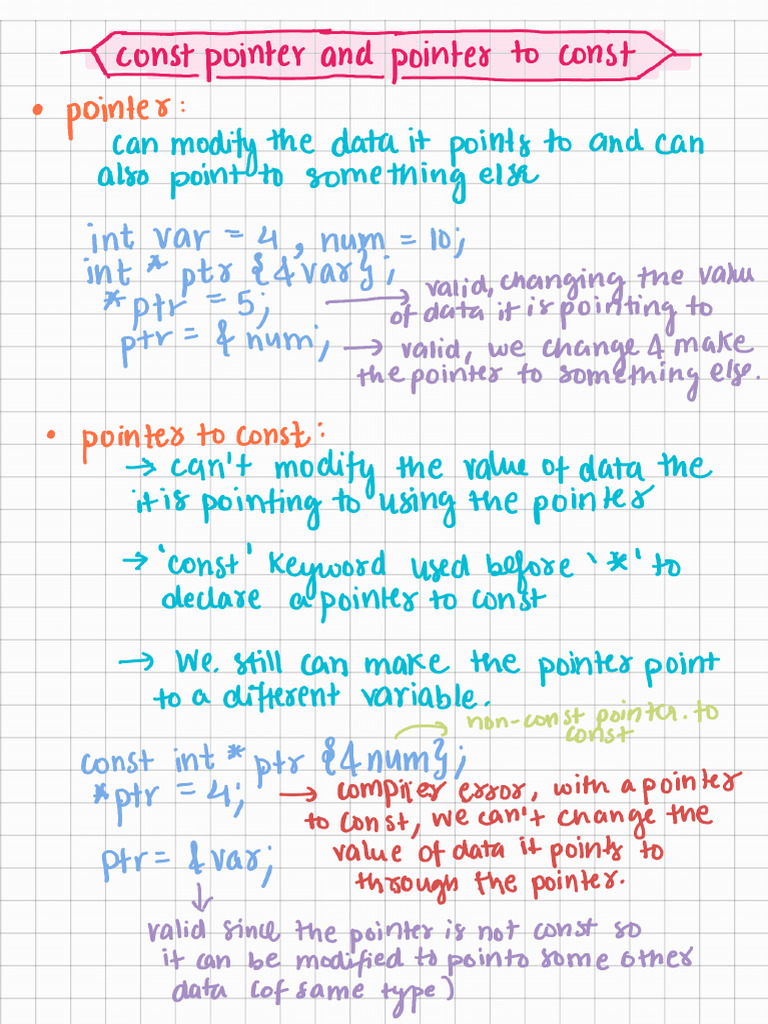 const pointer and pointer to const
• pointer:
can modify the data it points to and can
also point to something else
int var = 4, num = 10;
int * ptr {&var};
*ptr = 5; → valid, changing the value
of data it is pointing to
ptr = & num; → valid, we change & make
the pointer to something else.
• pointer to const:
→ can't modify the value of data the
it is pointing to using the pointer
→ 'const' keyword used before '*' to
declare a pointer to const
→ We. still can make the pointer point
to a different variable.
non-const pointer. to
const
const int * ptr {&num};
*ptr = 4; → compiler error, with a pointer
to const, we can't change the
value of data it points to
through the pointer.
ptr = &var;
valid since the pointer is not const so
it can be modified to pointo some other
data (of same type)